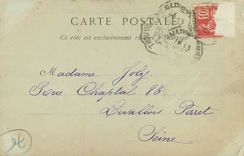 CARTE POSTALE
Ce côté est exclusivement
Madame Joly
Rue Chaptal 83
Levallois Perret
Seine